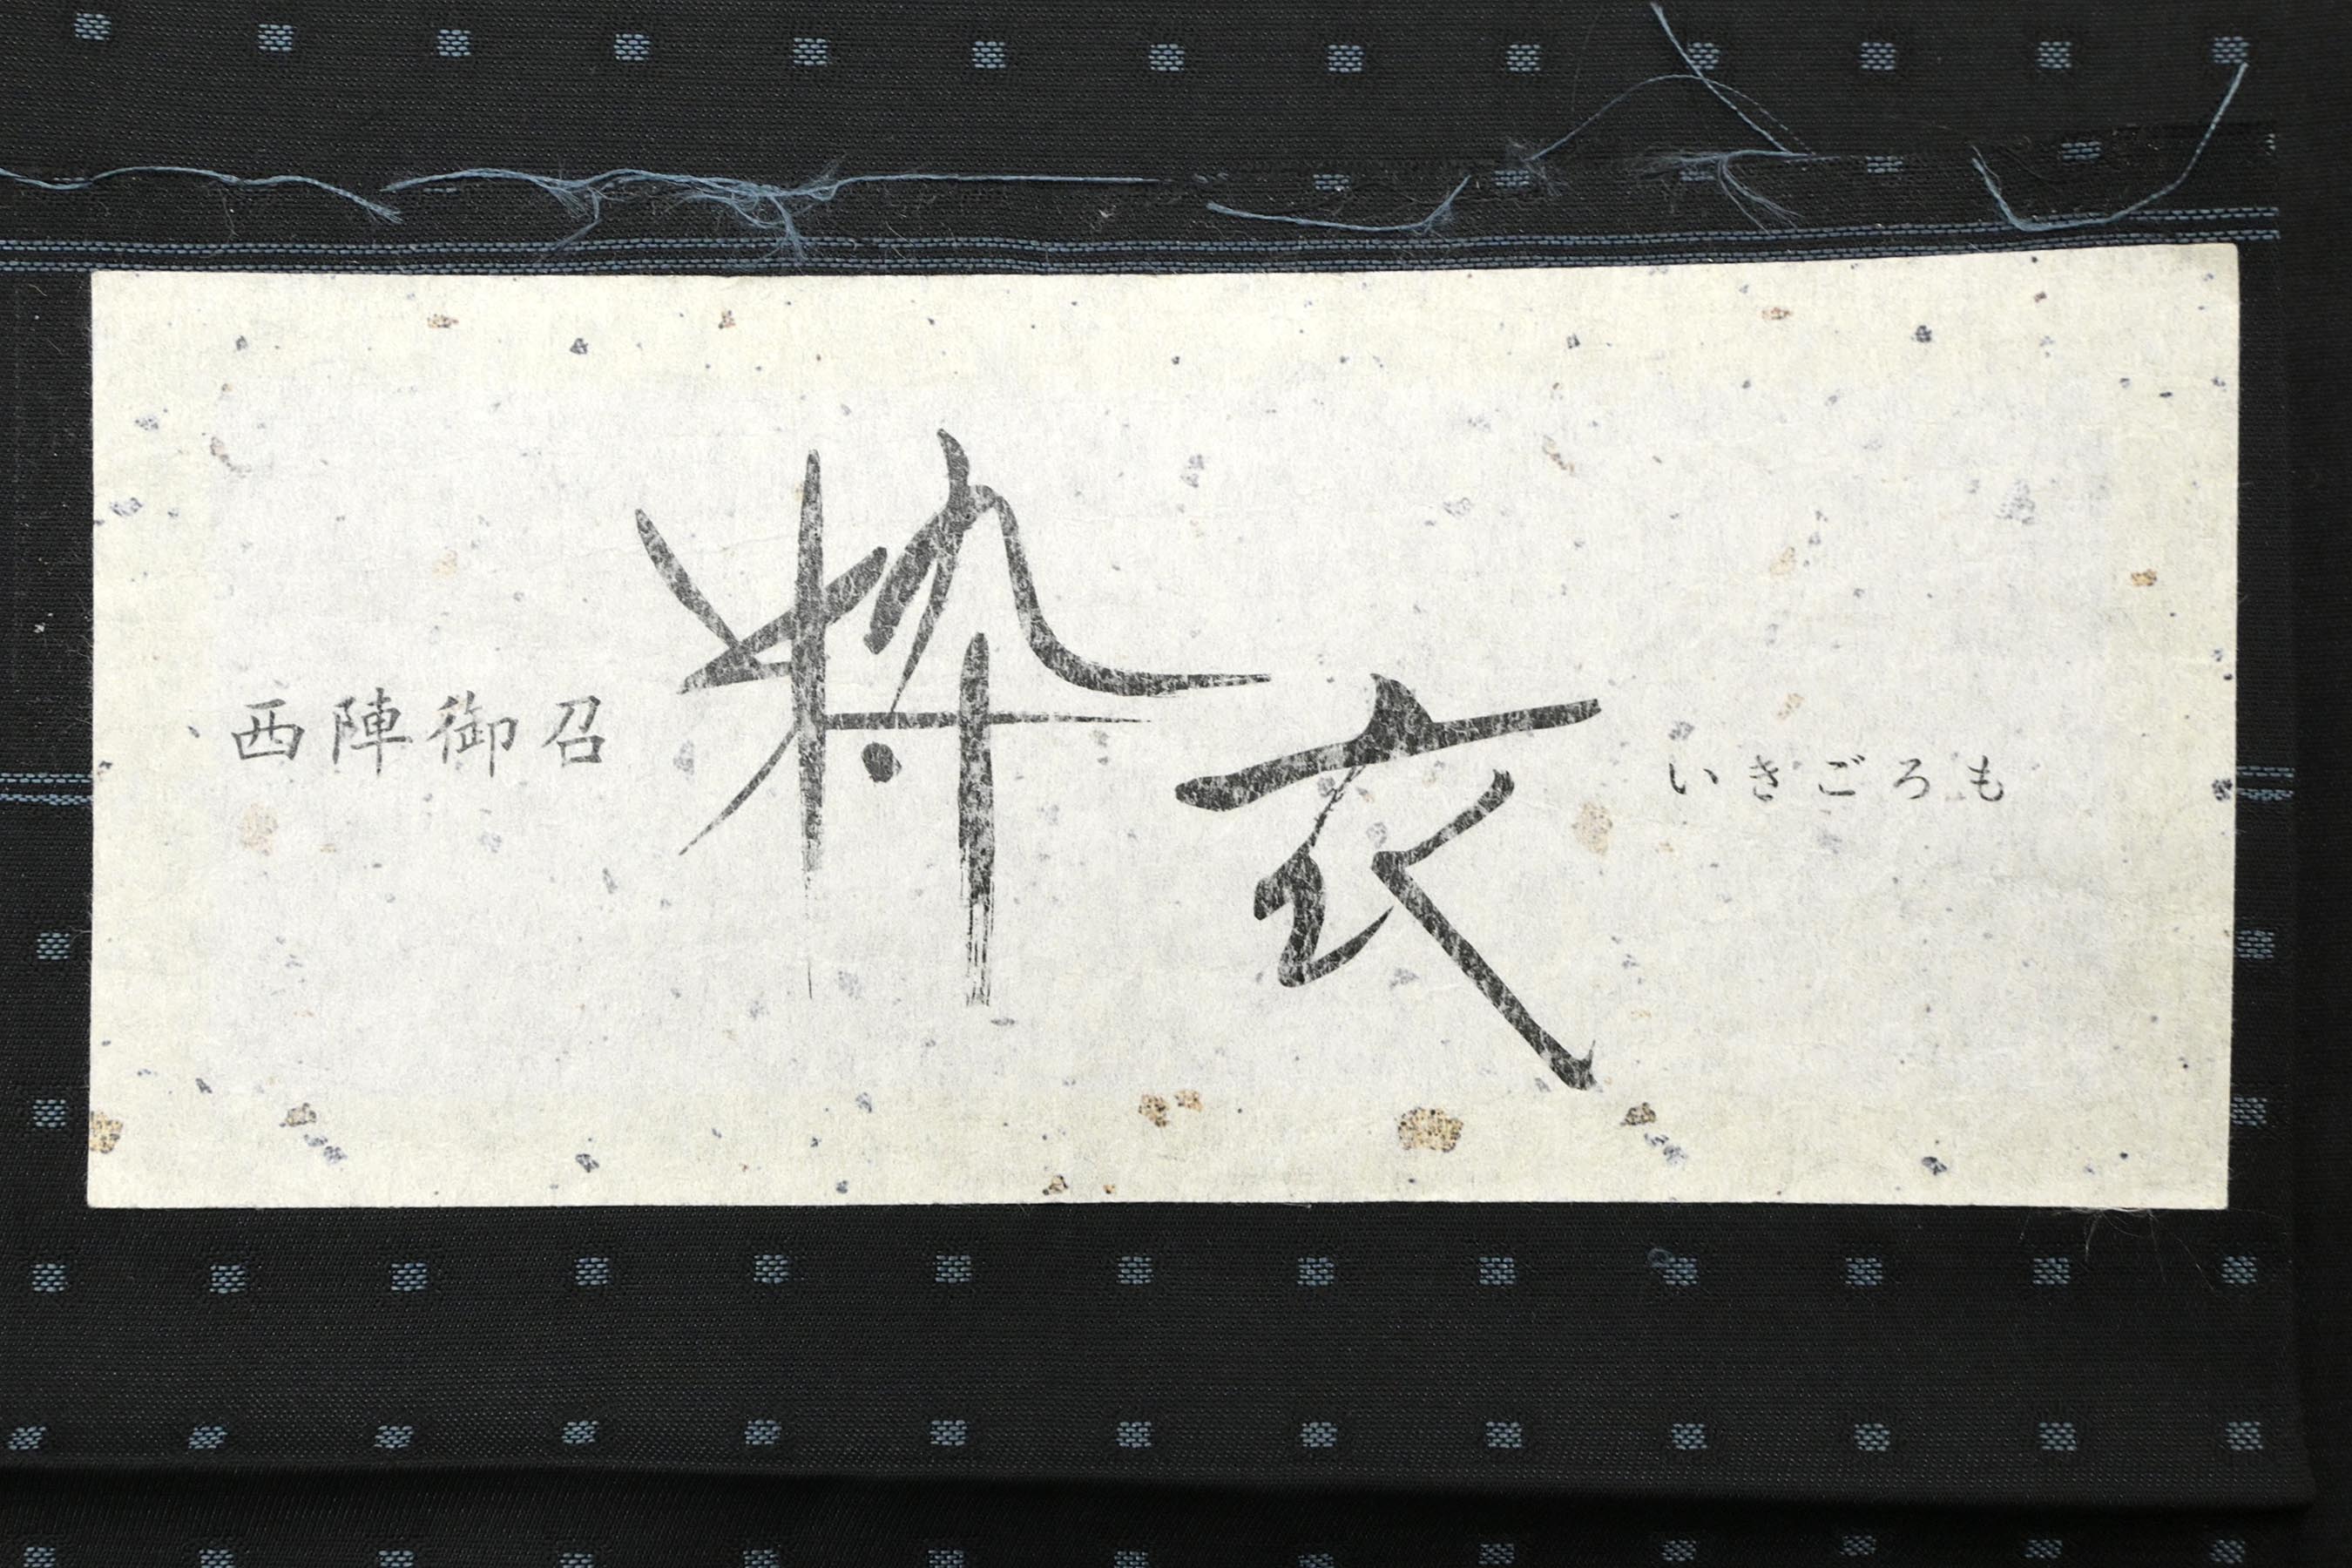 西陣御召
粋衣
いきごろも